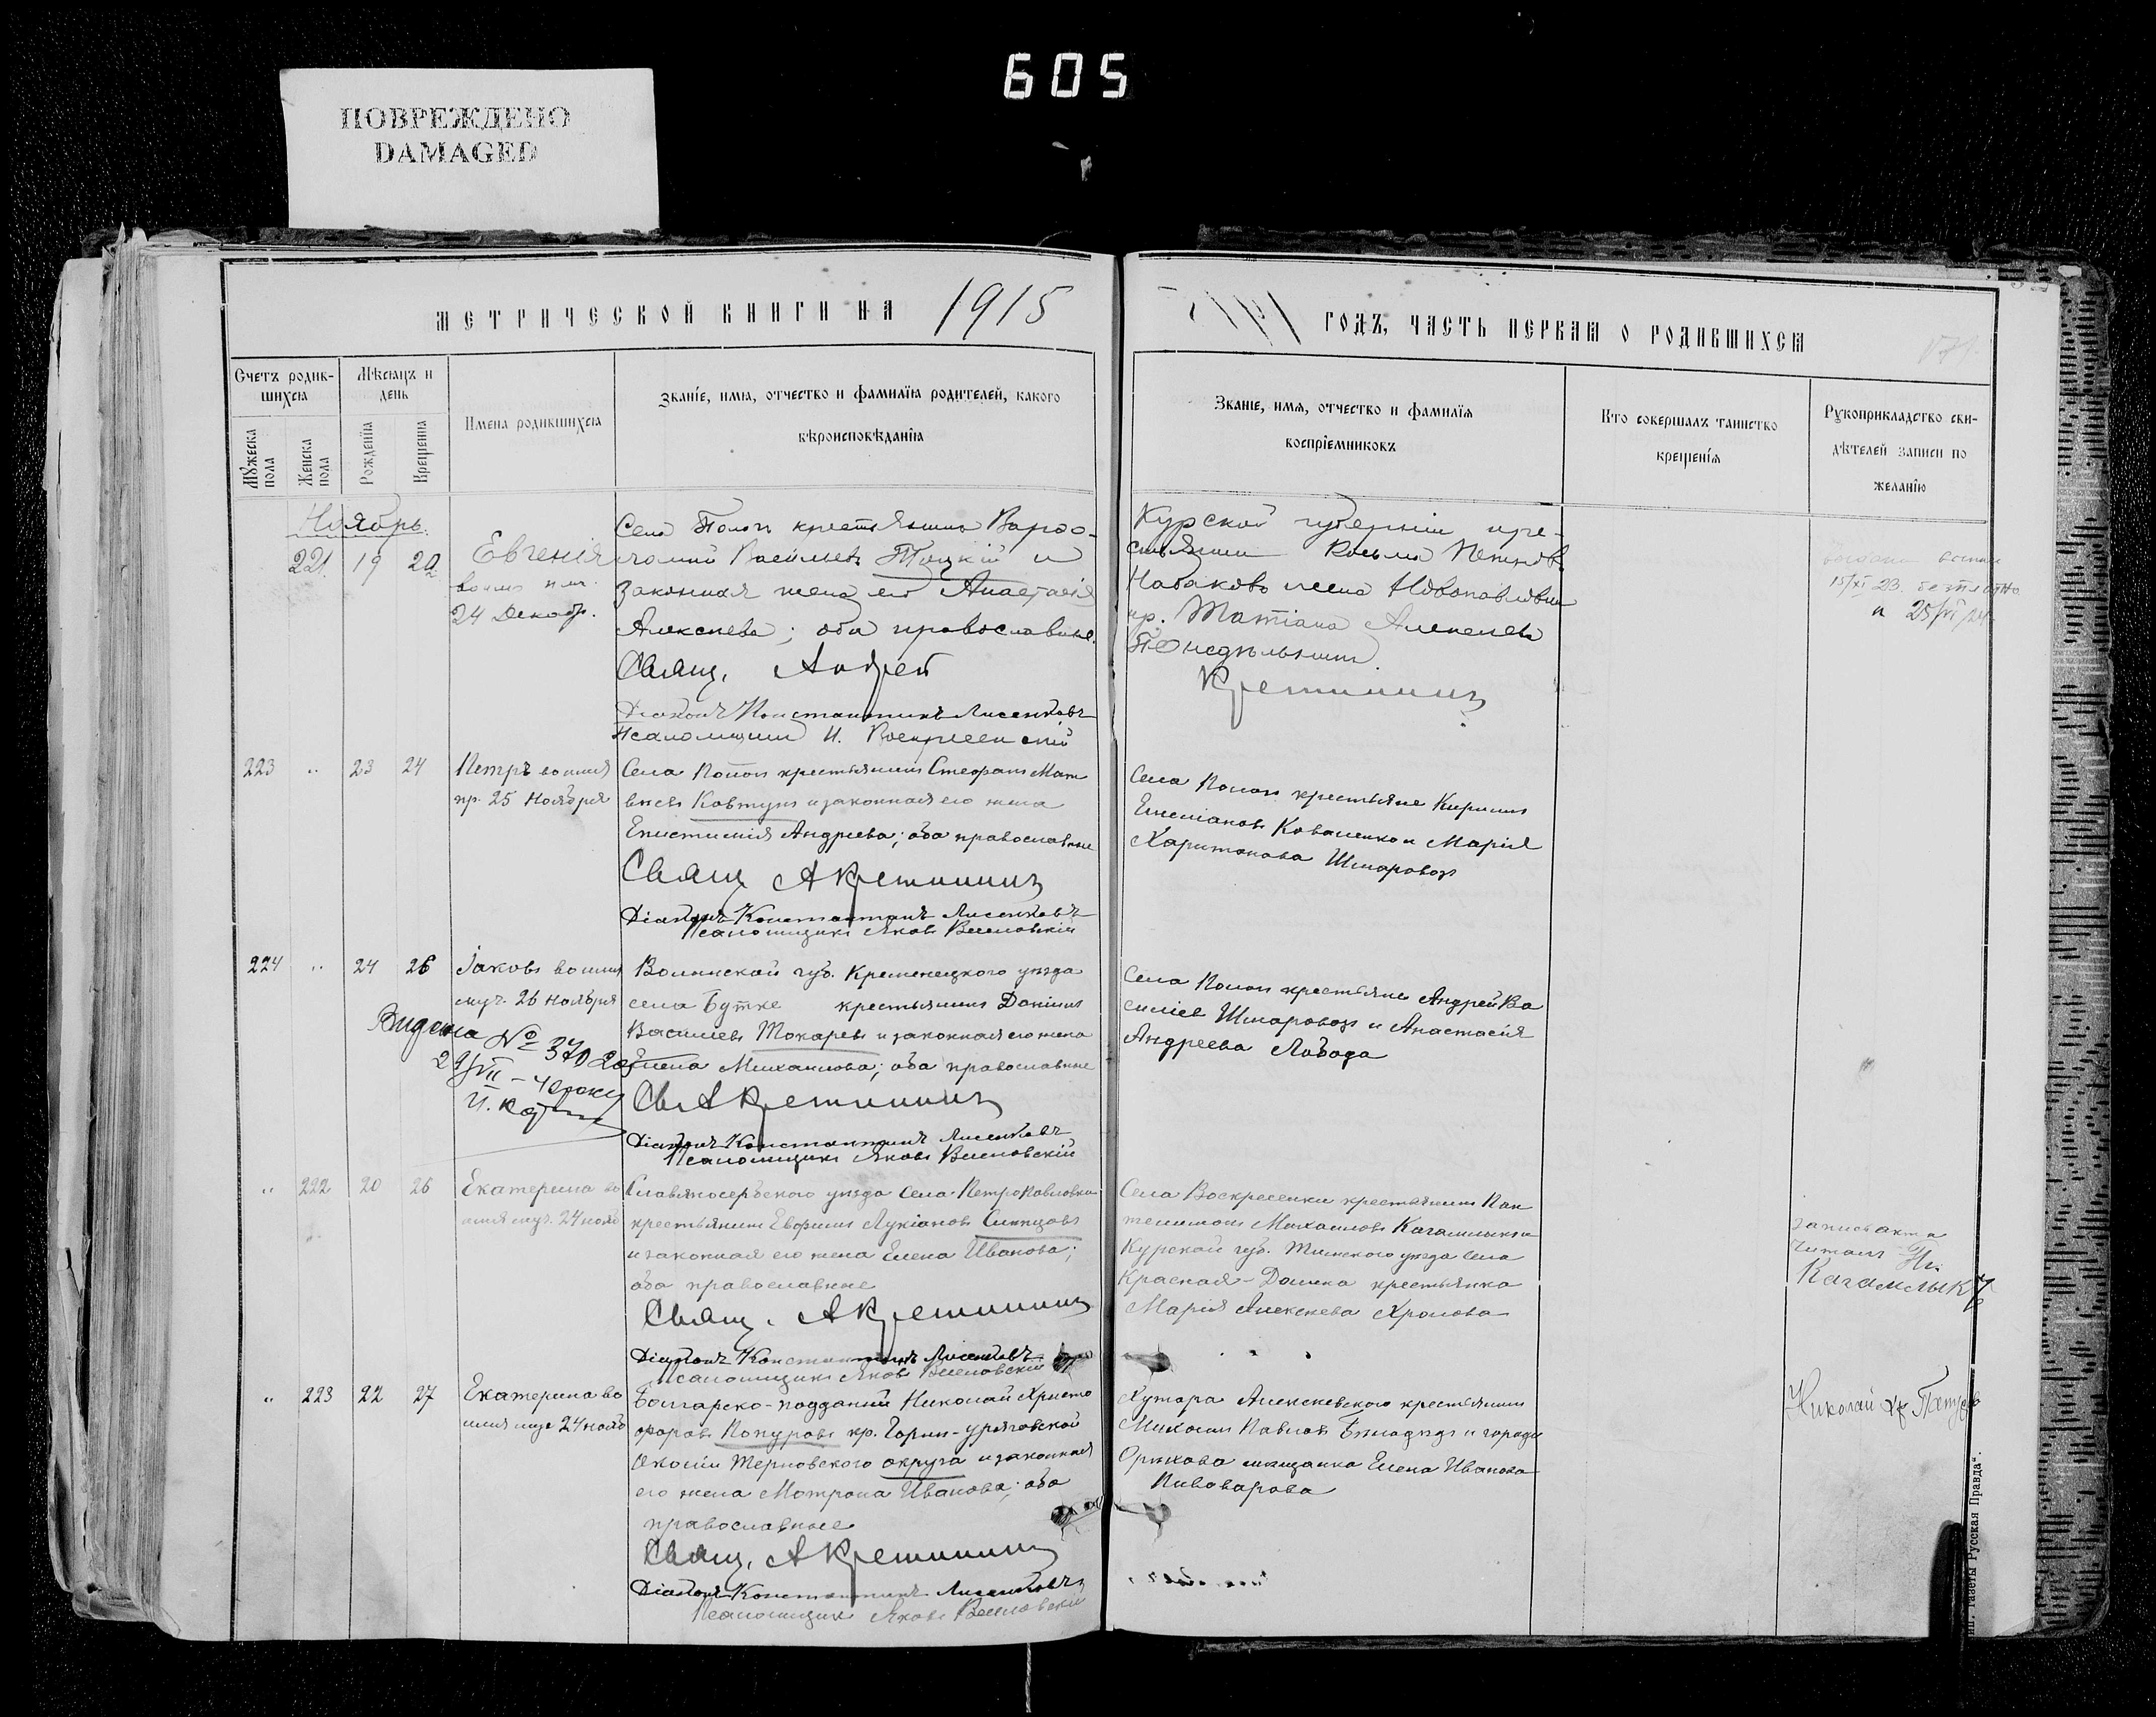 605
ПОВРЕЖДЕНО
DAMAGED
МЕТРИЧЕСКОЙ КНИГИ НА 1915
ГОДЪ, ЧАСТЬ ПЕРВАЯ О РОДИВШИХСЯ
Счетъ родив-
шихся
Мѣсяцъ и
день
Мужеска
пола
Женска
пола
Рожденія
Крещенія
Имена родившихся
Званіе, имя, отчество и фамилія родителей, какого
вѣроисповѣданія
Званіе, имя, отчество и фамилія
воспріемниковъ
Кто совершалъ таинство
крещенія
Рукоприкладство сви-
дѣтелей записи по
желанію
Ноябрь.
221. 19 20 Евгенія
24 Декабр.
Села Пологъ крестьянинъ
Васильевъ Троцкій и
законная жена его Анастасія
Алексѣева; оба православные.
Свящ. Андрей
Діаконъ Константинъ Лисенковъ
Псаломщикъ И. Воскресенскій
Курской губерніи кре-
стьянинъ Косьма
Татіана Алексѣева
Кретининъ
15/XI 23.
и 25/VI 24
223 " 23 24 Петръ
пр. 25 Ноября
Села Пологъ крестьянинъ Стефанъ Мат
вѣевъ Ковтунъ и законная его жена
Епистимія Андреева; оба православные
Свящ А Кретининъ
Діаконъ Константинъ Лисенковъ
Псаломщикъ Яковъ Веселовскій
Села Пологъ крестьяне Кириллъ
Емеліановъ Коваленко и Марія
Харитонова Шмаровозъ
224 " 24 26 Іаковъ
муч. 26 Ноября
Видана № 370
И.
Волынской губ. Кременецкого уѣзда
села крестьянинъ Даніилъ
Васильевъ Токаревъ и законная его жена
Елена Михаилова; оба православные
Св А Кретининъ
Діаконъ Константинъ Лисенковъ
Псаломщикъ Яковъ Веселовскій
Села Пологъ крестьяне Андрей Ва
силіев Шмаровозъ и Анастасія
Андреева Лобода
" 222 20 26 Екатерина во
имя муч. 24 нояб
Славяносербского уѣзда села Петропавловки
крестьянинъ Евфимій Лукіановъ Синицовъ
и законная его жена Елена Иванова;
оба православные
Свящ. А Кретининъ
Діаконъ Константинъ Лисенковъ
Псаломщикъ Яковъ Веселовскій
Села Воскресенки крестьянинъ Пан
телимонъ Михаиловъ Кагамлыкъ и
Курской губ. Тимского уѣзда села
Красная-Долина крестьянка
Марія Алексѣева Хромова
Запись акта
читалъ
Кагамлык
" 223 22 27 Екатерина во
имя муч 24 нояб
Болгарско-подданый Николай Христо
форовъ Попуровъ кр.
Терновского округа и законная
его жена Матрона Иванова; оба
православные
Свящ. А Кретининъ
Діаконъ Константинъ Лисенковъ
Псаломщикъ Яковъ Веселовскій
Хутора Алексѣевского крестьянинъ
Михаилъ Павловъ Бѣлодѣдъ и города
Орѣхова мѣщанка Елена Иванова
Пивоварова
Николай
газеты „Русская Правда“.